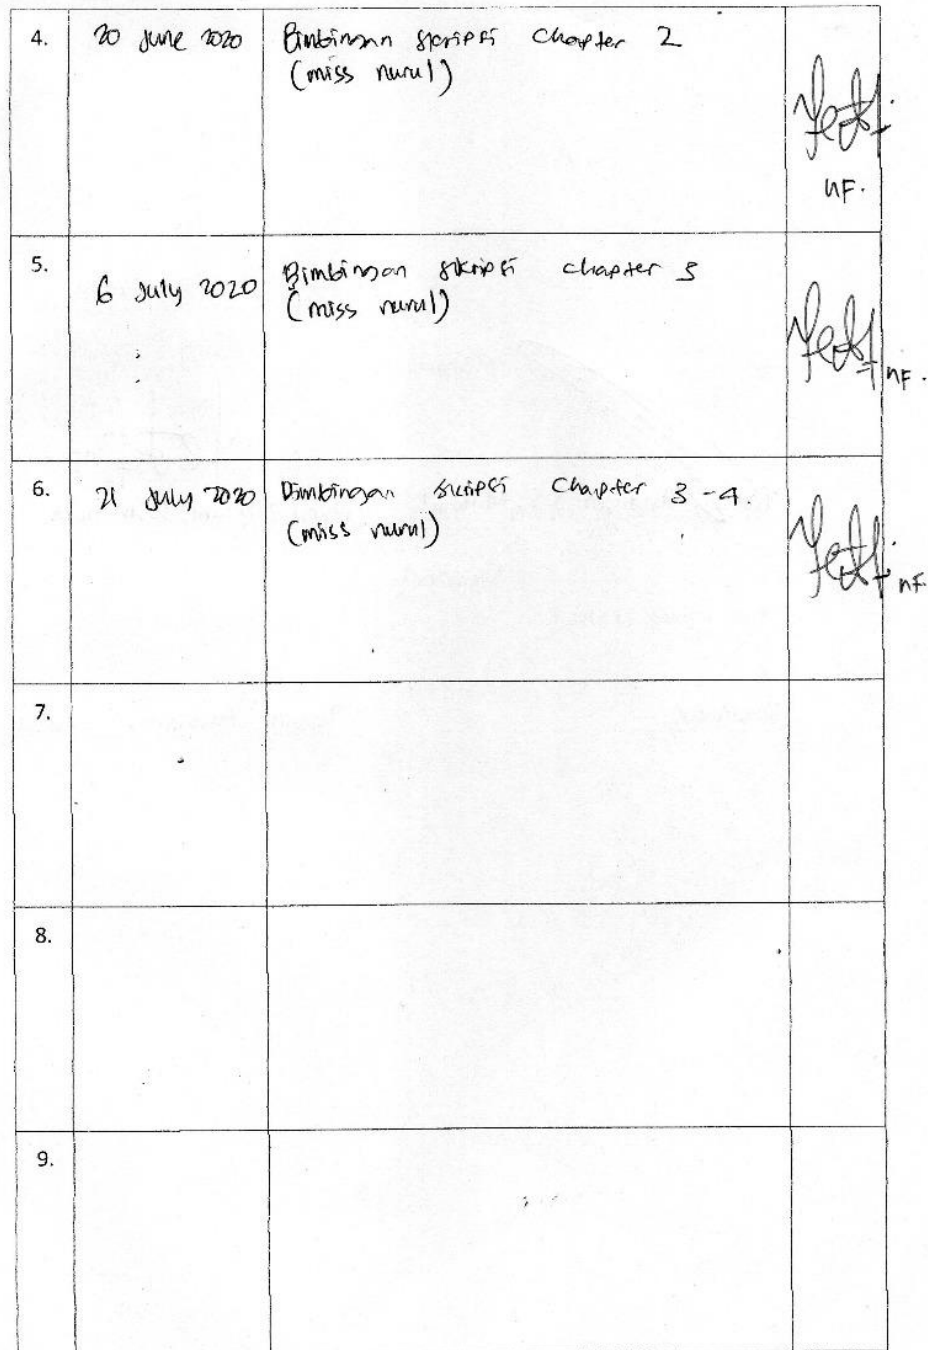 4. 20 June 2020 Bimbingan skripsi chapter 2
(miss nurul)
nF.
5. 6 July 2020 Bimbingan skripsi chapter 3
(miss nurul)
nF.
6. 21 July 2020 Bimbingan skripsi Chapter 3-4.
(miss nurul)
nF
7.
8.
9.